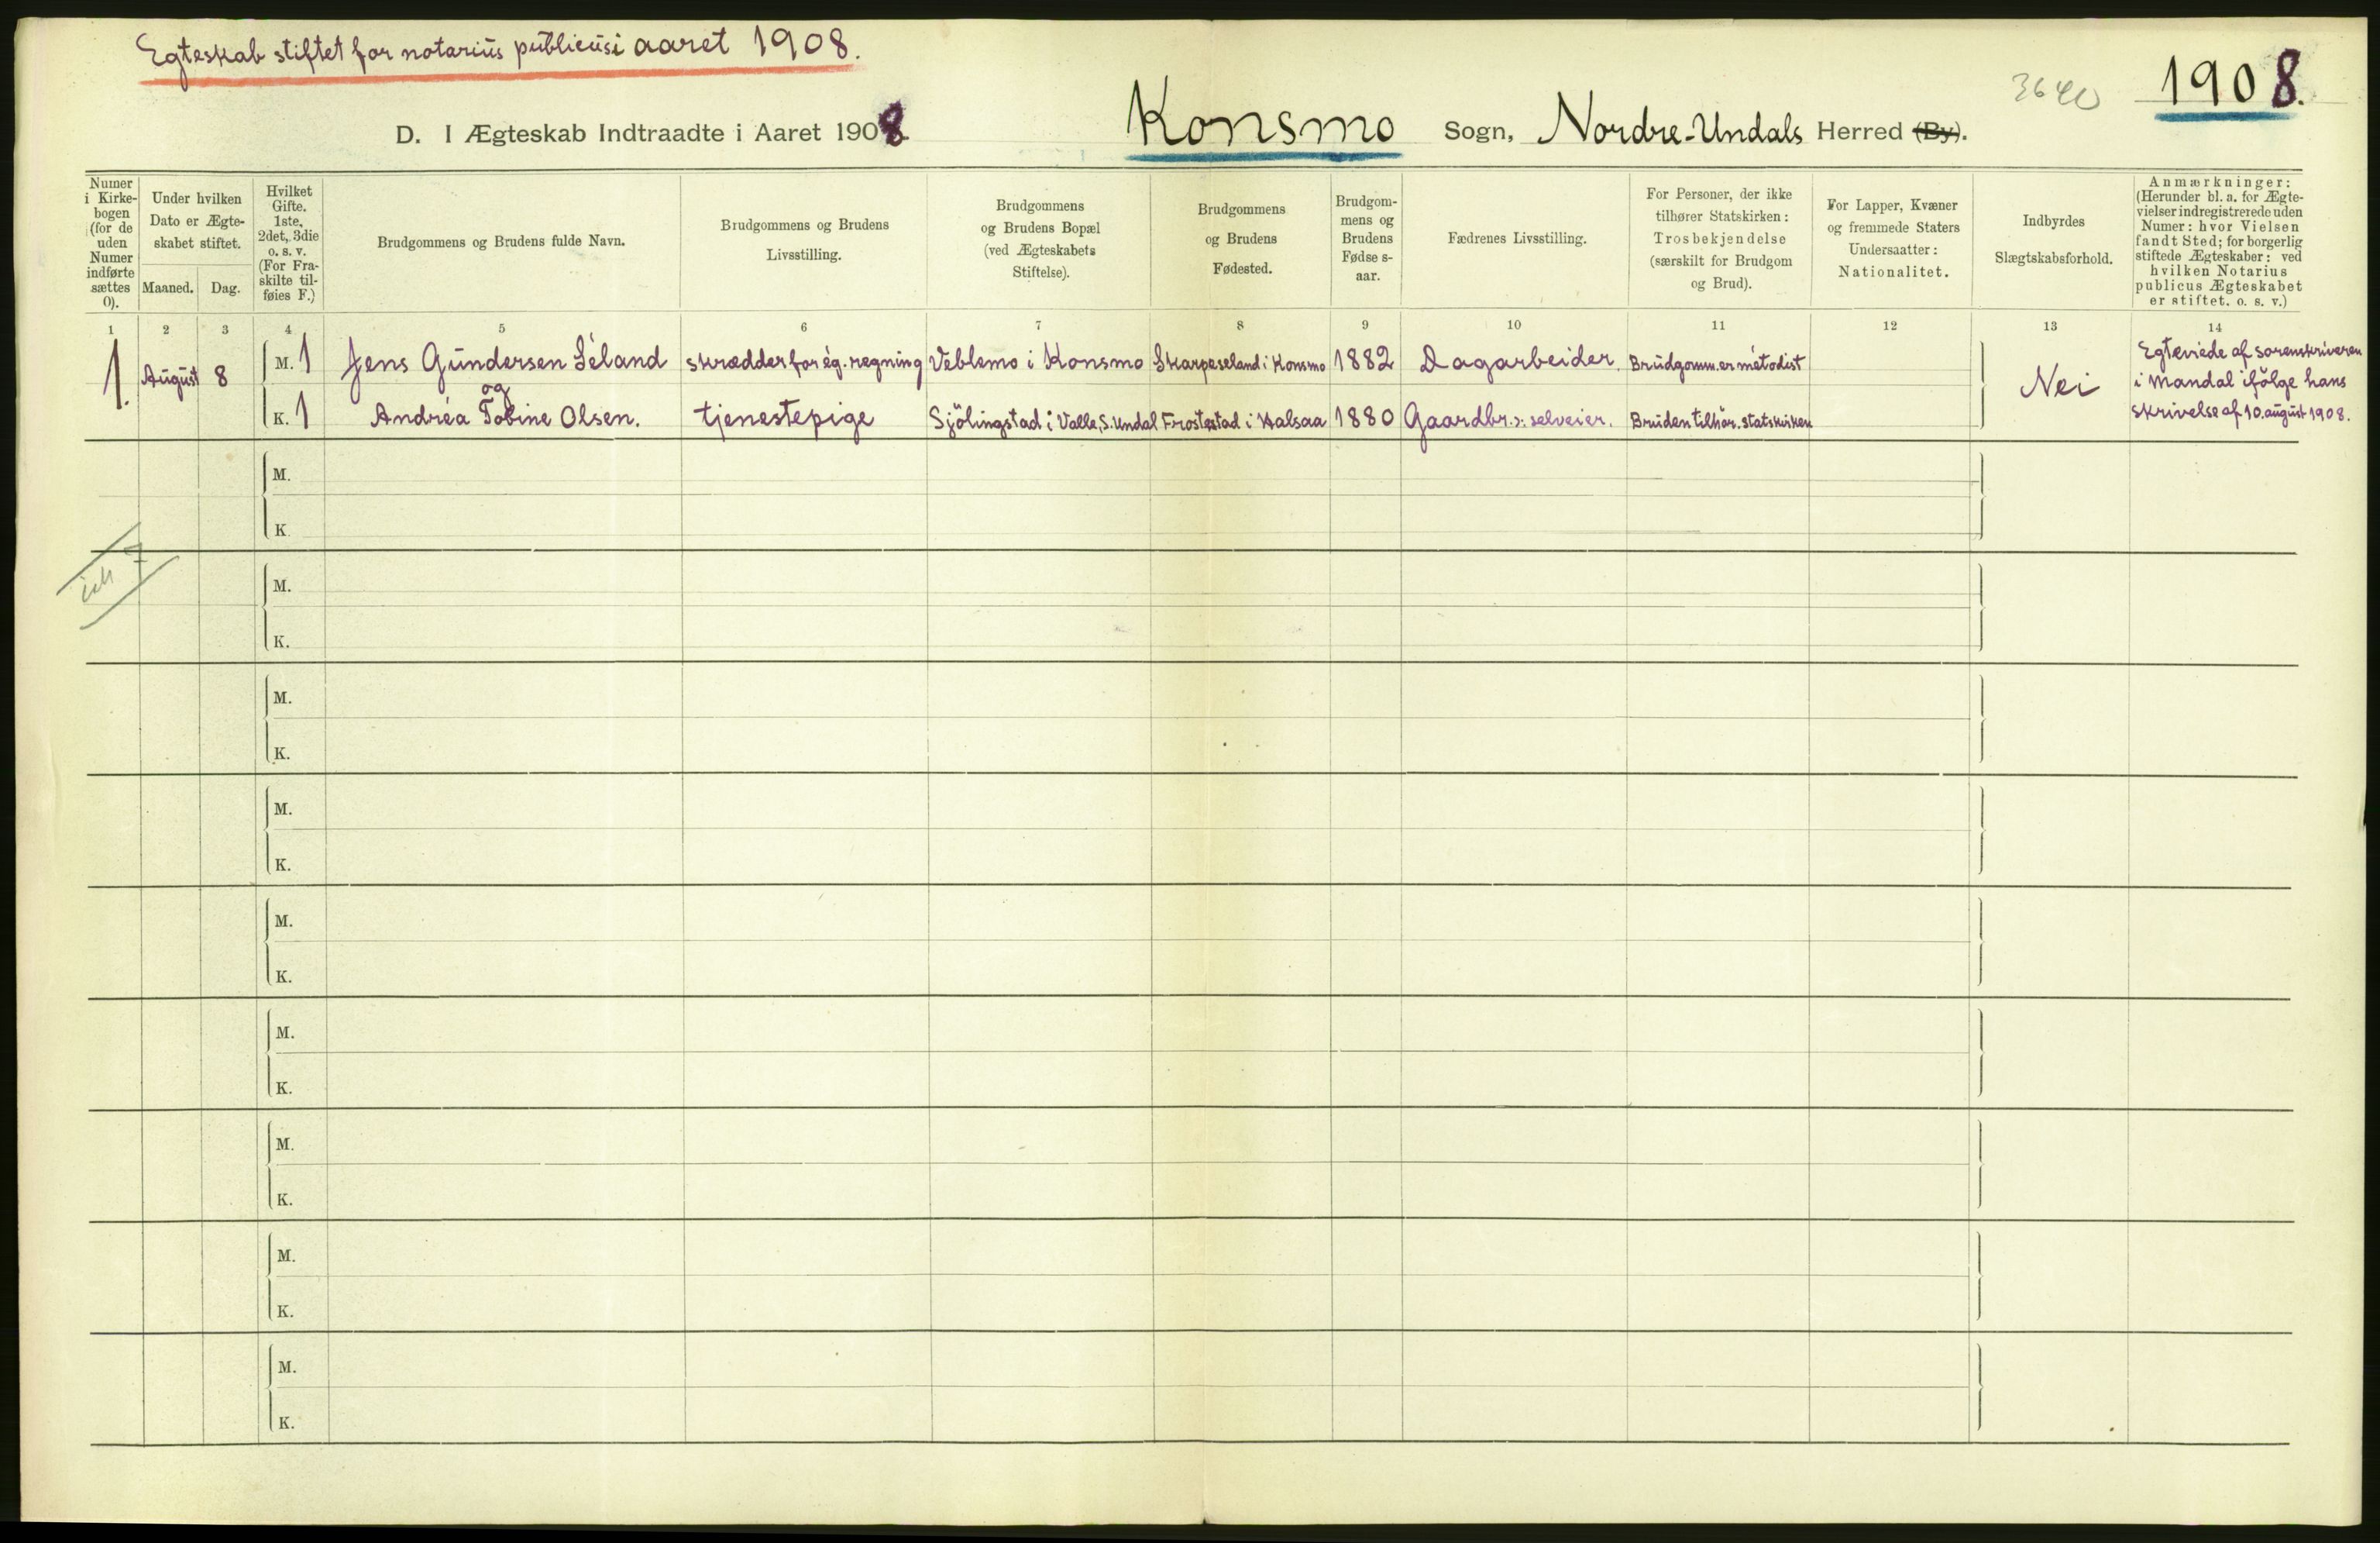 Egteskab stiftet for notarius publicus i aaret 1908.
3640
1908.
D. I Ægteskab Indtraadte i Aaret 1908. Konsmo Sogn, Nordre-Undals Herred (By).
Numer
i Kirke-
bogen
(for de
uden
Numer
indførte
sættes
0).
Under hvilken
Dato er Ægte-
skabet stiftet.
Maaned. Dag.
Hvilket
Gifte.
1ste,
2det, 3die
o. s. v.
(For Fra-
skilte til-
føies F.)
Brudgommens og Brudens fulde Navn.
Brudgommens og Brudens
Livsstilling.
Brudgommens
og Brudens Bopæl
(ved Ægteskabets
Stiftelse).
Brudgommens
og Brudens
Fødested.
Brudgom-
mens og
Brudens
Fødse s-
aar.
Fædrenes Livsstilling.
For Personer, der ikke
tilhører Statskirken:
Trosbekjendelse
(særskilt for Brudgom
og Brud).
For Lapper, Kvæner
og fremmede Staters
Undersaatter:
Nationalitet.
Indbyrdes
Slægtskabsforhold.
Anmærkninger:
(Herunder bl. a. for Ægte-
vielser indregistrerede uden
Numer: hvor Vielsen
fandt Sted; for borgerlig
stiftede Ægteskaber: ved
hvilken Notarius
publicus Ægteskabet
er stiftet. o. s. v.)
1 2 3 4 5 6 7 8 9 10 11 12 13 14
1. August 8
M. 1 Jens Gundersen Séland skrædder for eg. regning Veblemo i Konsmo Skarpeseland i Konsmo 1882 Dagarbeider. Brudgomm. er metodist
og
K. 1 Andréa Tobine Olsen. tjenestepige Sjölingstad i Valle, S. Undal Frostestad i Halsaa 1880 Gaardbr. ɔ: selveier. Bruden tilhör. statskirken
Nei
Egteviede af sorenskriveren
i Mandal ifölge hans
skrivelse af 10. august 1908.
M.
K
M.
K.
M.
K.
M.
K.
M.
K.
M.
K.
M.
K.
M.
K.
M.
K.